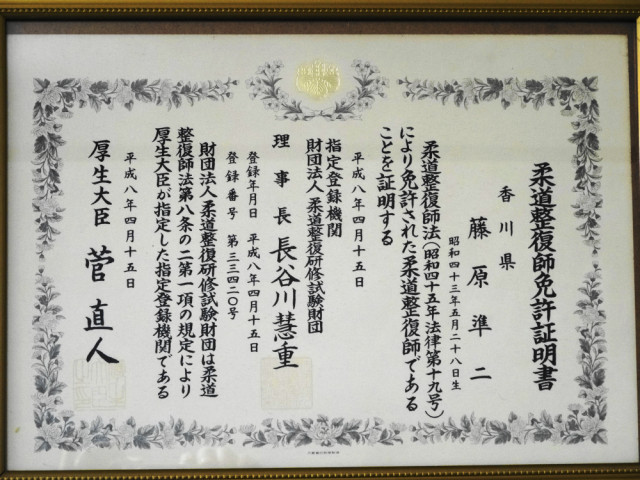 柔道整復師免許証明書
香川県
藤原準二
昭和四十三年五月二十八日生
柔道整復師法(昭和四十五年法律第十九号)
により免許された柔道整復師である
ことを証明する
平成八年四月十五日
指定登録機関
財団法人 柔道整復研修試験財団
理事長 長谷川慧重
登録年月日 平成八年四月十五日
登録番号 第三三四二〇号
財団法人柔道整復研修試験財団は柔道
整復師法第八条の二第一項の規定により
厚生大臣が指定した指定登録機関である
平成八年四月十五日
厚生大臣 菅直人